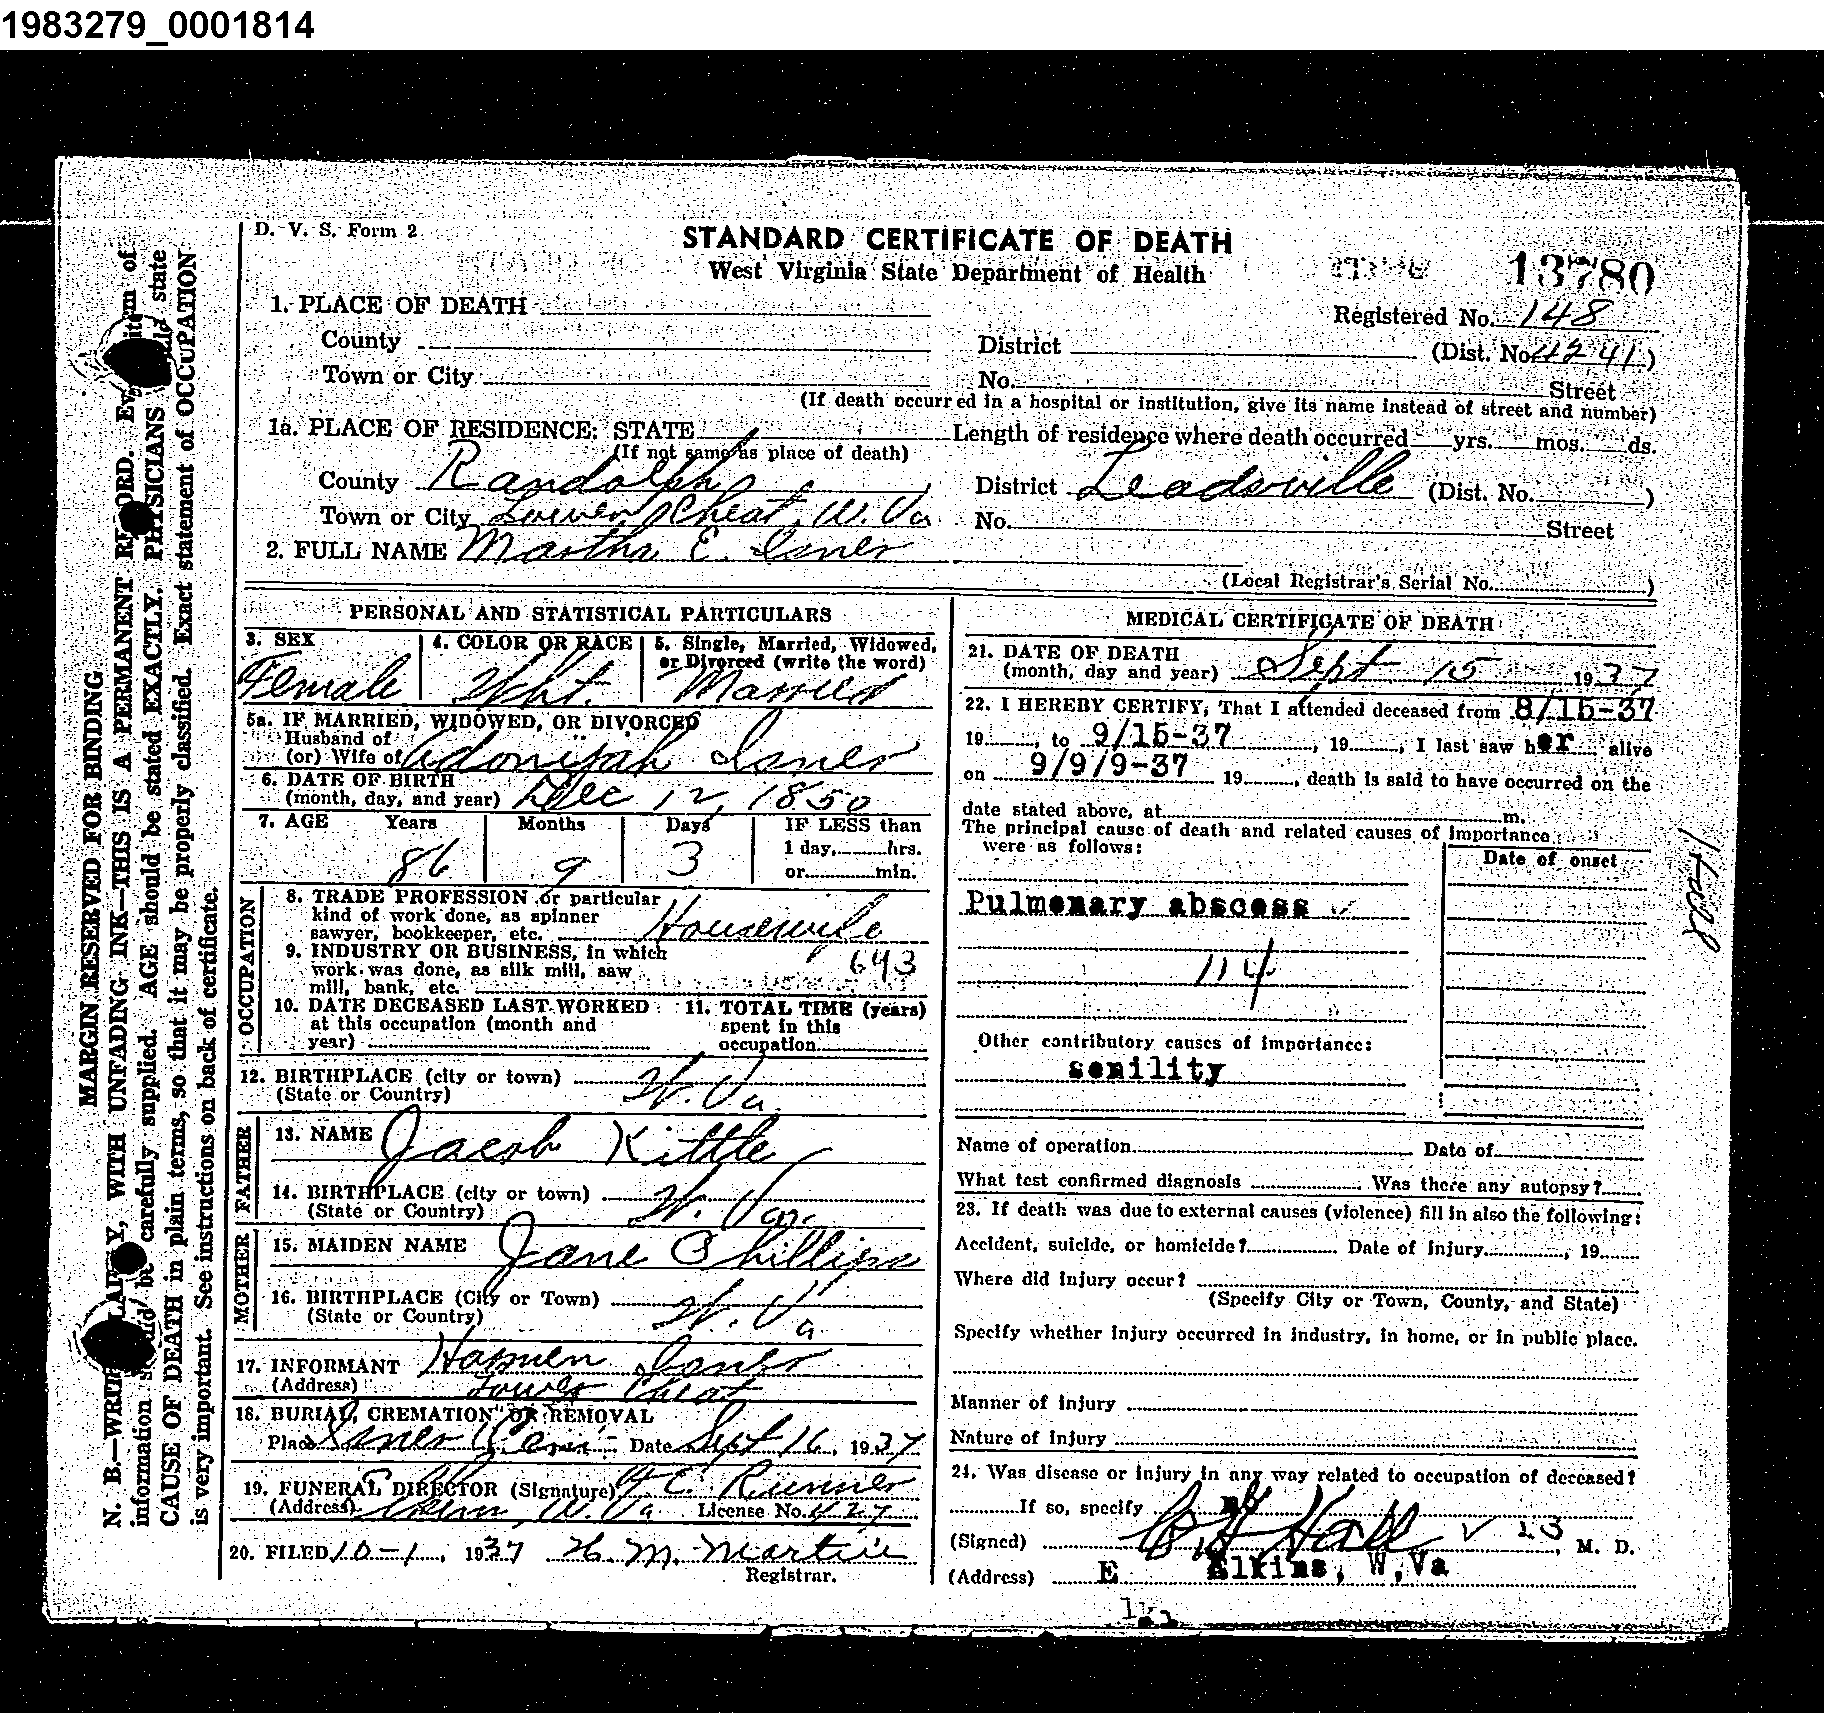 1983279_0001814
D. V. S. Form 2
STANDARD CERTIFICATE OF DEATH
West Virginia State Department of Health
13780
1. PLACE OF DEATH
Registered No. 148
County
District (Dist. No. 4241)
Town or City
No. Street
(If death occurred in a hospital or institution, give its name instead of street and number)
1a. PLACE OF RESIDENCE: STATE Length of residence where death occurred yrs. mos. ds.
(If not same as place of death)
County Randolph District Leadsville (Dist. No. )
Town or City Lower Cheat, W. Va No. Street
2. FULL NAME Martha E. Isner
(Local Registrar's Serial No. )
PERSONAL AND STATISTICAL PARTICULARS
3. SEX Female
4. COLOR OR RACE Wht.
5. Single, Married, Widowed,
or Divorced (write the word)
Married
5a. IF MARRIED, WIDOWED, OR DIVORCED
Husband of
(or) Wife of Adonijah Isner
6. DATE OF BIRTH
(month, day, and year) Dec 12, 1850
7. AGE Years Months Days IF LESS than
1 day, hrs.
86 9 3 or min.
OCCUPATION
8. TRADE PROFESSION or particular
kind of work done, as spinner
sawyer, bookkeeper, etc. Housewife
9. INDUSTRY OR BUSINESS, in which
work was done, as silk mill, saw
mill, bank, etc.
643
10. DATE DECEASED LAST WORKED
at this occupation (month and
year)
11. TOTAL TIME (years)
spent in this
occupation
12. BIRTHPLACE (city or town) W. Va
(State or Country)
FATHER
13. NAME Jacob Kittle
14. BIRTHPLACE (city or town) W. Va.
(State or Country)
MOTHER
15. MAIDEN NAME Jane Phillips
16. BIRTHPLACE (City or Town) W. Va
(State or Country)
17. INFORMANT Isner
(Address) Lower Cheat
18. BURIAL, CREMATION OR REMOVAL
Place Isner Cem. Date Sept 16, 1937
19. FUNERAL DIRECTOR (Signature) Runner
(Address) Elkins, W. Va License No. 427
20. FILED 10-1, 1937 H. M. Martin
Registrar.
MEDICAL CERTIFICATE OF DEATH
21. DATE OF DEATH
(month, day and year) Sept 15 1937
22. I HEREBY CERTIFY, That I attended deceased from 8/15-37
19 , to 9/15-37 , 19 , I last saw her alive
on 9/9/9-37 19 , death is said to have occurred on the
date stated above, at m.
The principal cause of death and related causes of importance
were as follows:
Date of onset
Pulmonary abscess
114
Other contributory causes of importance:
senility
Name of operation Date of
What test confirmed diagnosis Was there any autopsy?
23. If death was due to external causes (violence) fill in also the following:
Accident, suicide, or homicide? Date of injury , 19
Where did injury occur?
(Specify City or Town, County, and State)
Specify whether injury occurred in industry, in home, or in public place.
Manner of injury
Nature of injury
24. Was disease or injury in any way related to occupation of deceased?
If so, specify no
(Signed) Hall M. D.
(Address) E Elkins, W,Va
Hall
MARGIN RESERVED FOR BINDING
N. B.—WRITE WITH UNFADING INK—THIS IS A PERMANENT RECORD. item of
information should be carefully supplied. AGE should be stated EXACTLY. PHYSICIANS state
CAUSE OF DEATH in plain terms, so that it may be properly classified. Exact statement of OCCUPATION
is very important. See instructions on back of certificate.